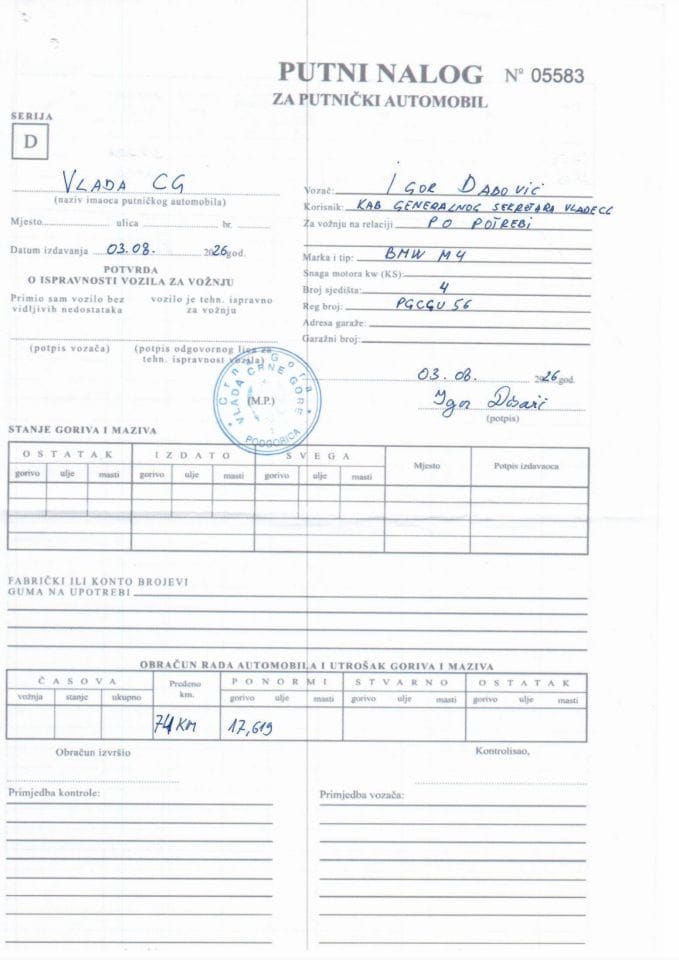 PUTNI NALOG N° 05583
ZA PUTNIČKI AUTOMOBIL
SERIJA
D
VLADA CG
(naziv imaoca putničkog automobila)
Mjesto ulica br.
Datum izdavanja 03.08. 2026 god.
POTVRDA
O ISPRAVNOSTI VOZILA ZA VOŽNJU
Primio sam vozilo bez vidljivih nedostataka
vozilo je tehn. ispravno za vožnju
(potpis vozača)
(potpis odgovornog lica za tehn. ispravnost vozila)
Vozač: IGOR DABOVIĆ
Korisnik: KAB GENERALNOG SEKRETARA VLADE CG
Za vožnju na relaciji PO POTREBI
Marka i tip: BMW M4
Snaga motora kw (KS):
Broj sjedišta: 4
Reg broj: PGCGU 56
Adresa garaže:
Garažni broj:
03.08. 2026 god.
(potpis)
Crna Gora
VLADA CRNE GORE
(M.P.)
PODGORICA
STANJE GORIVA I MAZIVA
OSTATAK IZDATO SVEGA Mjesto Potpis izdavaoca
gorivo ulje masti gorivo ulje masti gorivo ulje masti
FABRIČKI ILI KONTO BROJEVI
GUMA NA UPOTREBI
OBRAČUN RADA AUTOMOBILA I UTROŠAK GORIVA I MAZIVA
ČASOVA Pređeno km. PONORMI STVARNO OSTATAK
vožnja stanje ukupno gorivo ulje masti gorivo ulje masti gorivo ulje masti
74 KM 17,619
Obračun izvršio Kontrolisao,
Primjedba kontrole: Primjedba vozača: